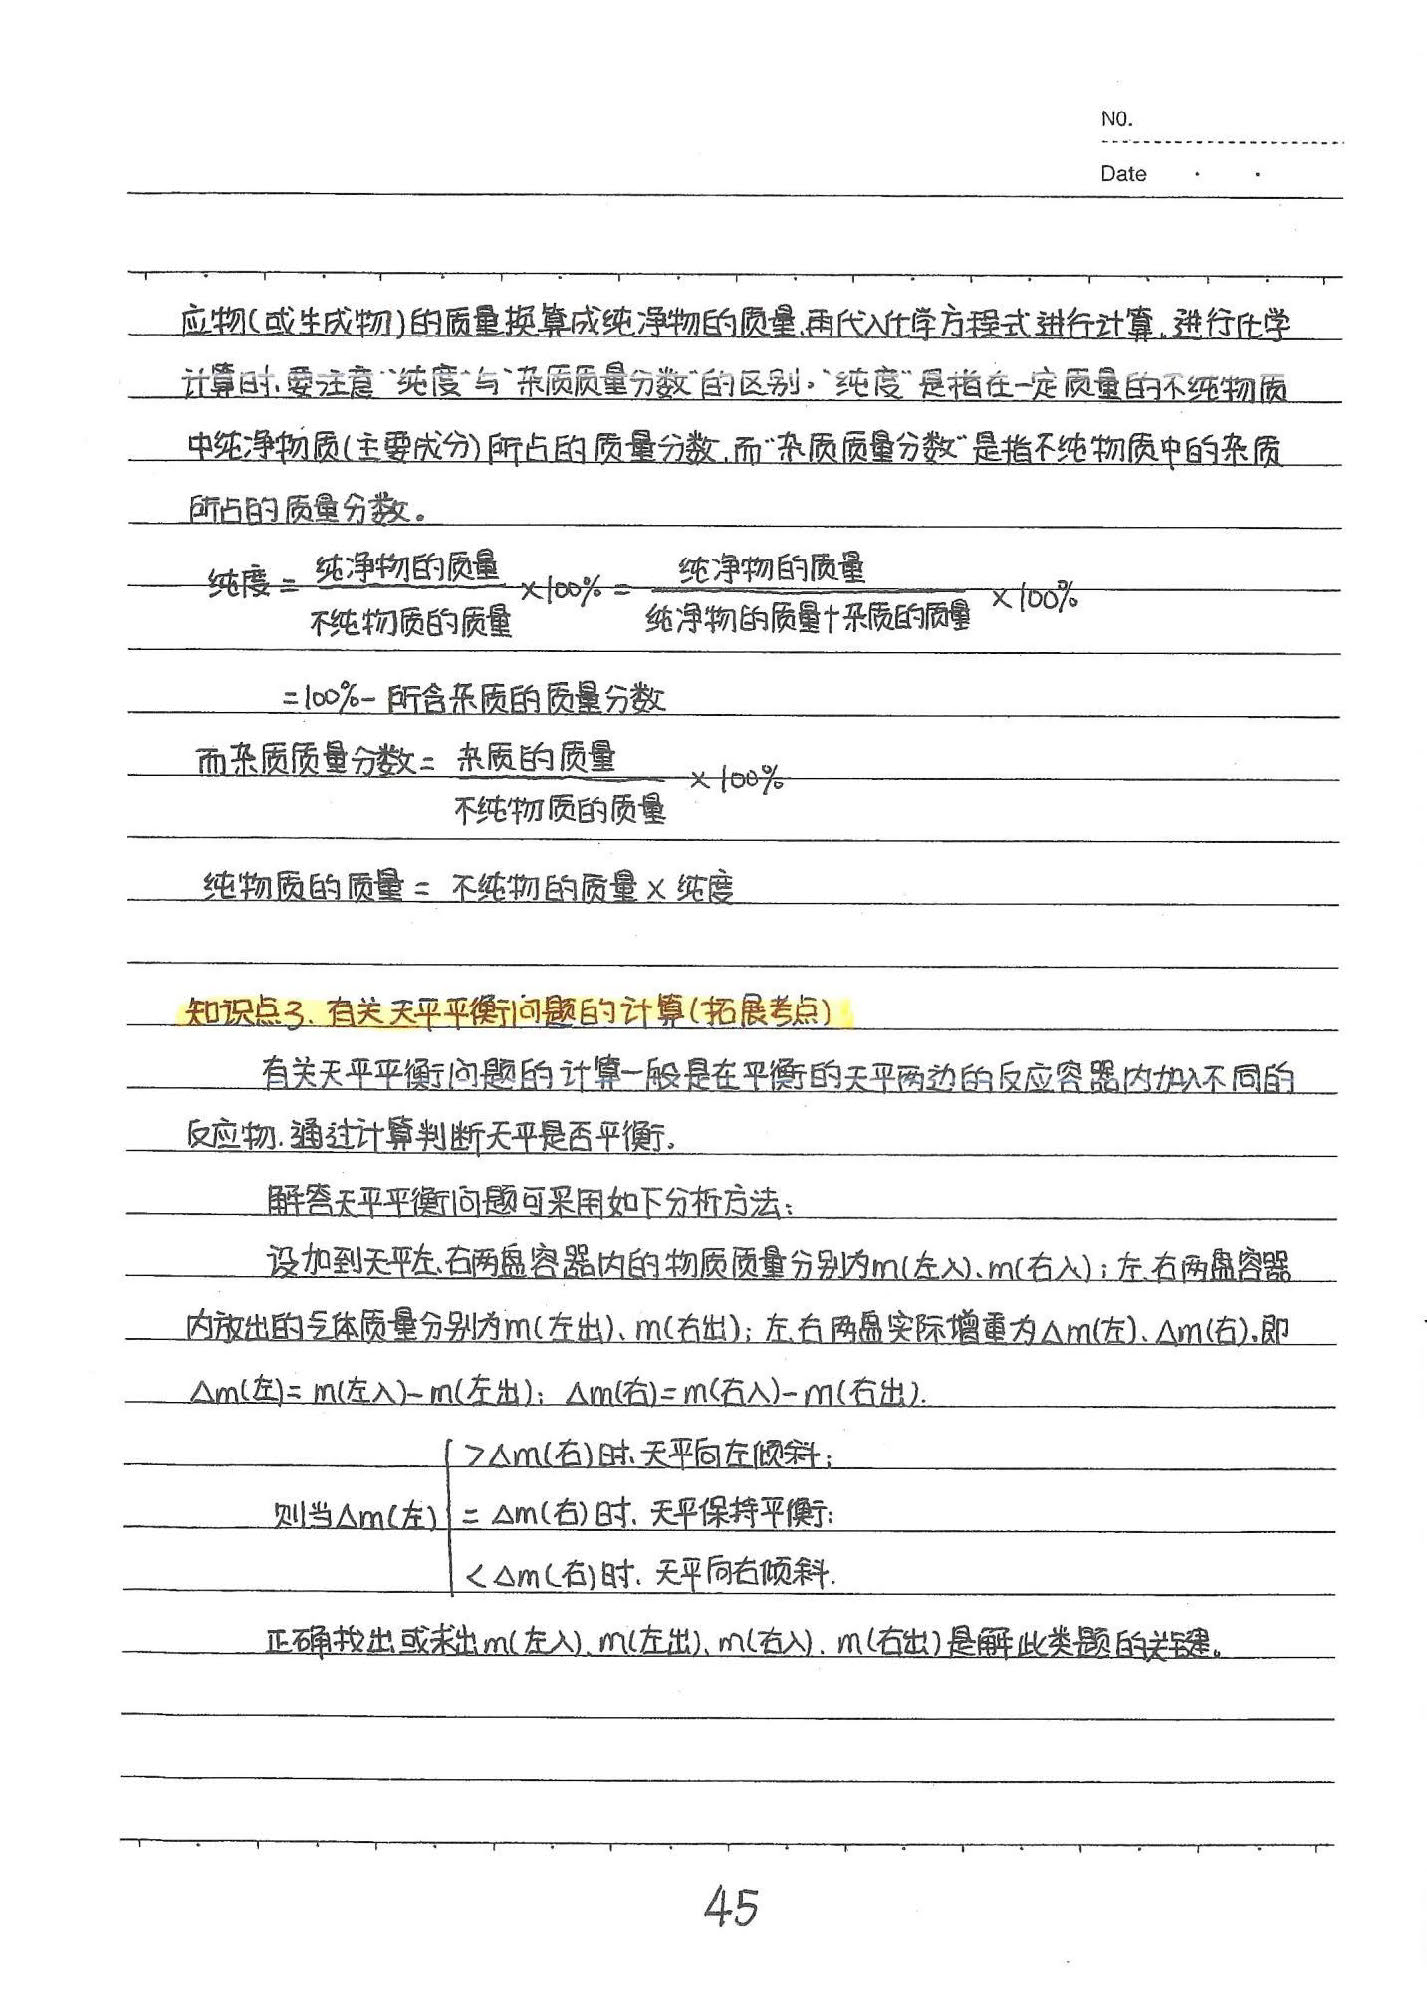 NO.
Date
应物(或生成物)的质量换算成纯净物的质量,再代入化学方程式进行计算.进行化学
计算时,要注意“纯度”与“杂质质量分数”的区别。“纯度”是指在一定质量的不纯物质
中纯净物质(主要成分)所占的质量分数,而“杂质质量分数”是指不纯物质中的杂质
所占的质量分数。
纯度=纯净物的质量/不纯物质的质量×100%=纯净物的质量/纯净物的质量+杂质的质量×100%
=100%-所含杂质的质量分数
而杂质质量分数=杂质的质量/不纯物质的质量×100%
纯物质的质量=不纯物的质量×纯度
知识点3.有关天平平衡问题的计算(拓展考点)
有关天平平衡问题的计算一般是在平衡的天平两边的反应容器内加入不同的
反应物.通过计算判断天平是否平衡.
解答天平平衡问题可采用如下分析方法:
设加到天平左、右两盘容器内的物质质量分别为m(左入)、m(右入);左、右两盘容器
内放出的气体质量分别为m(左出)、m(右出);左、右两盘实际增重为△m(左)、△m(右).即
△m(左)=m(左入)-m(左出);△m(右)=m(右入)-m(右出).
>△m(右)时,天平向左倾斜;
则当△m(左) =△m(右)时,天平保持平衡;
<△m(右)时,天平向右倾斜.
正确找出或求出m(左入)、m(左出)、m(右入)、m(右出)是解此类题的关键。
45